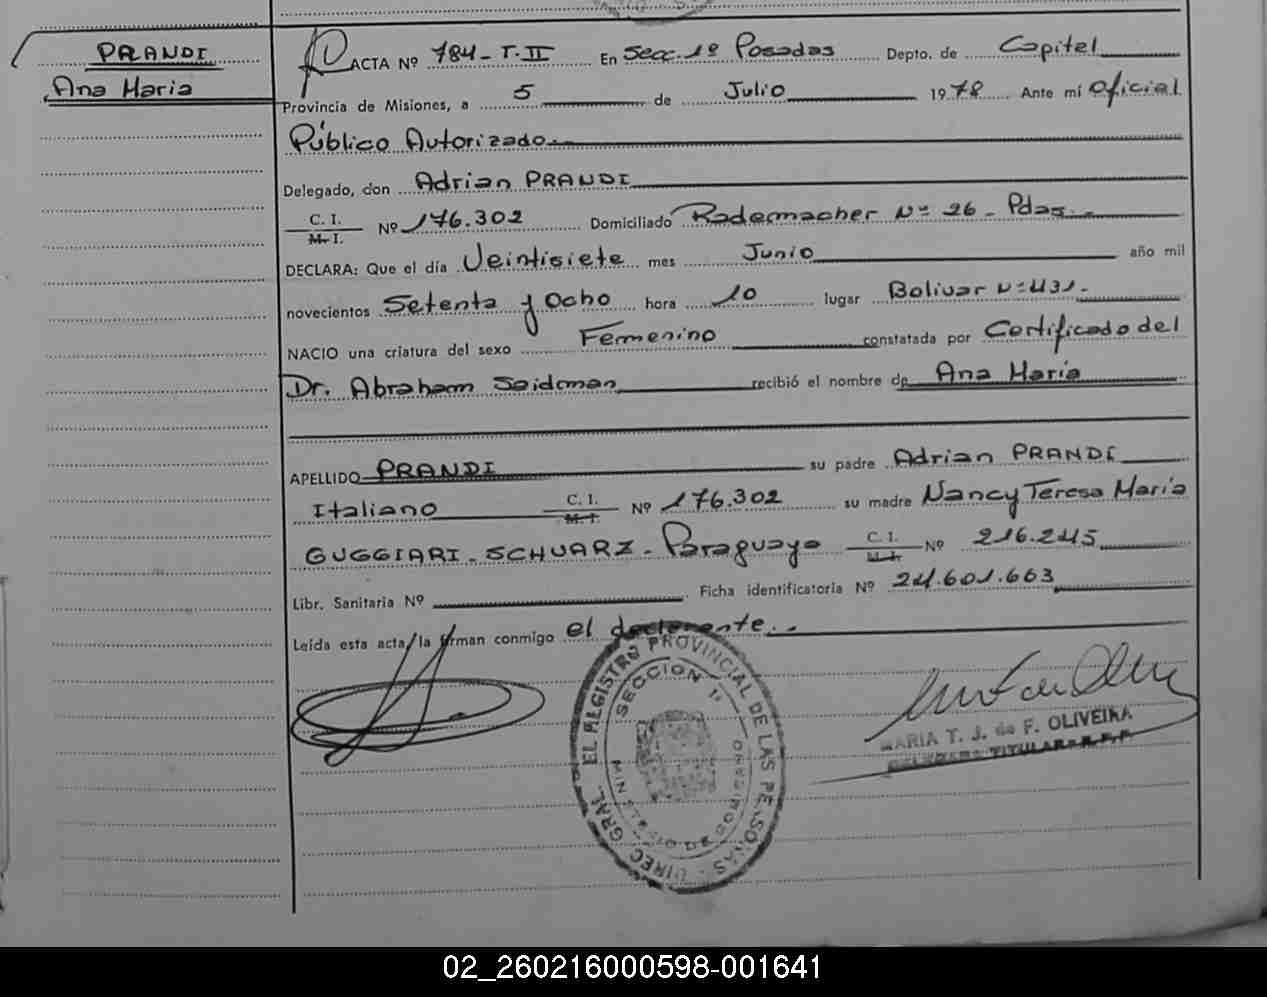 PRANDI
Ana Maria
ACTA Nº 784-T.II En Secc. 1º Posadas Depto. de Capital
Provincia de Misiones, a 5 de Julio 1978 Ante mí Oficial
Público Autorizado.
Delegado, don Adrian PRANDI
C. I. M. I. Nº 176.302 Domiciliado Rademacher Nº 26 - Pdas.-
DECLARA: Que el día Veintisiete mes Junio año mil
novecientos Setenta y Ocho hora 10 lugar Bolivar Nº 431.
NACIO una criatura del sexo Femenino constatada por Certificado del
Dr. Abraham Seidman recibió el nombre de Ana Maria
APELLIDO PRANDI su padre Adrian PRANDI
Italiano C. I. M. I. Nº 176.302 su madre Nancy Teresa María
GUGGIARI - SCHUARZ - Paraguaya C. I. M. I. Nº 216.245
Libr. Sanitaria Nº Ficha identificatoria Nº 24.601.663
Leída esta acta, la firman conmigo el declarante..
DIREC GRAL EL REGISTRO PROVINCIAL DE LAS PERSONAS
SECCION 1ª
MARIA T. J. de F. OLIVEIRA
TITULAR
02_260216000598-001641